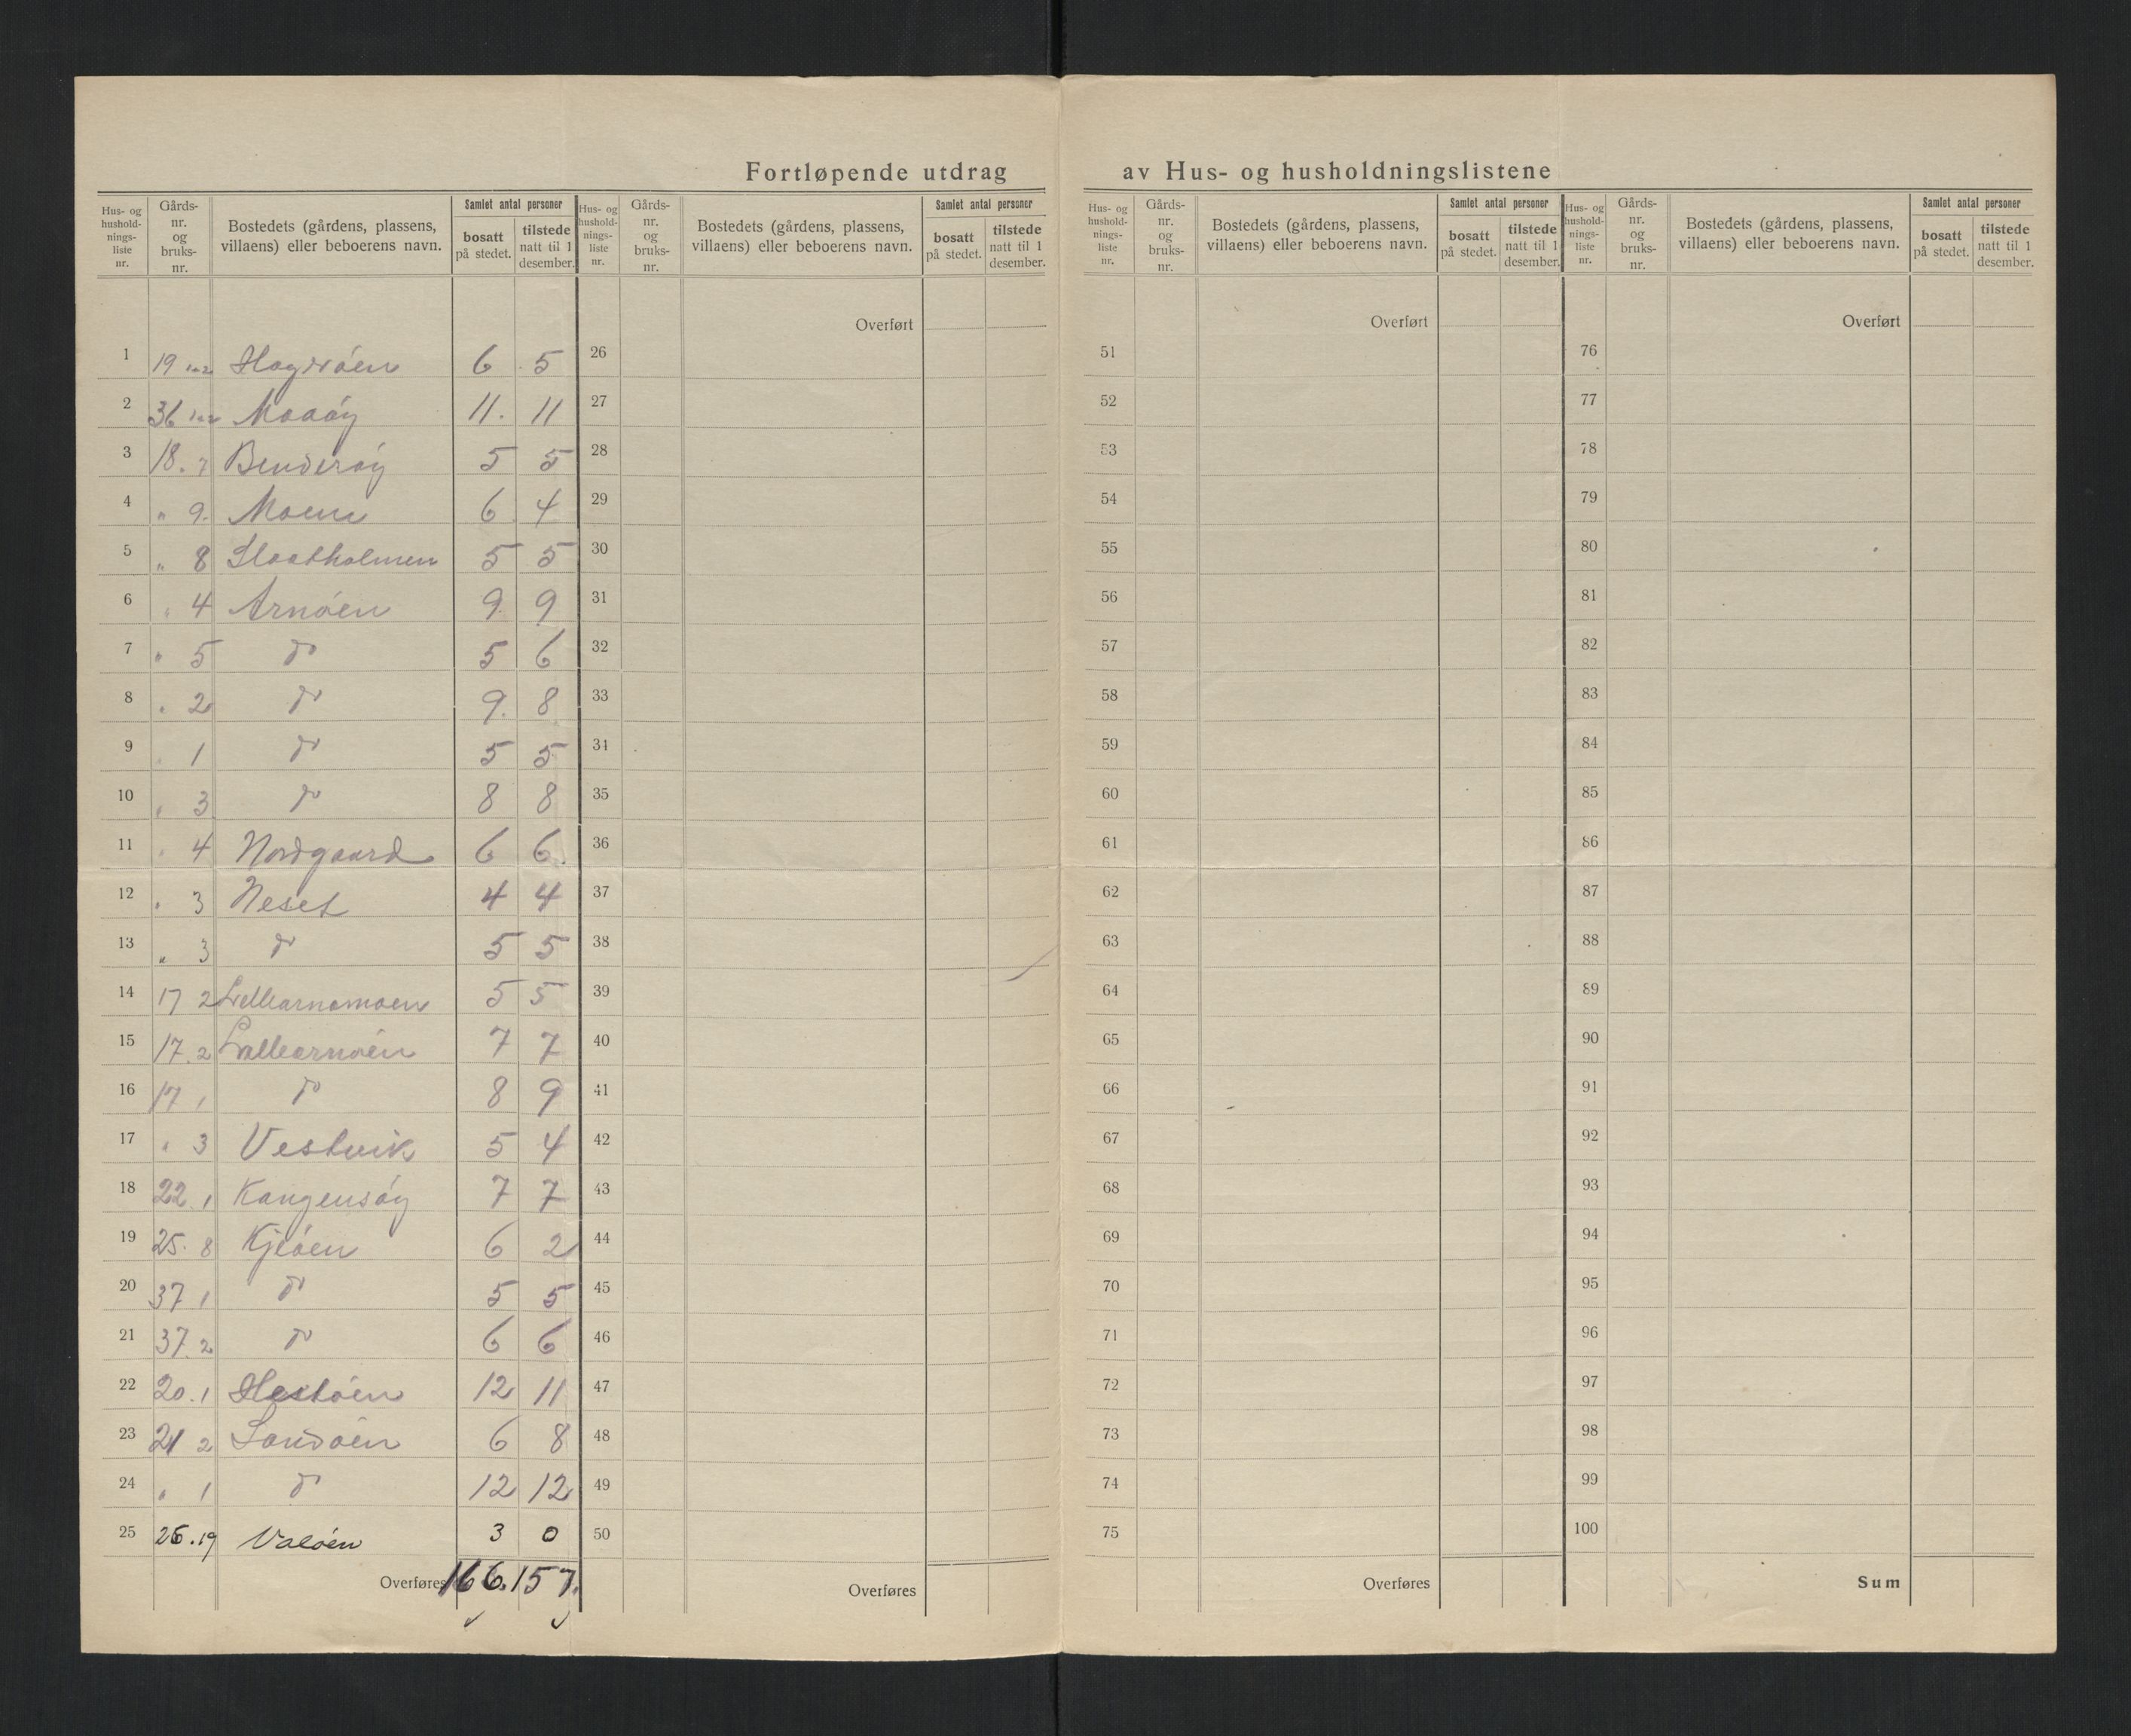 Fortløpende utdrag av Hus- og husholdningslistene
Hus- og hushold-nings-liste nr. Gårds-nr. og bruks-nr. Bostedets (gårdens, plassens, villaens) eller beboerens navn. Samlet antal personer bosatt på stedet. tilstede natt til 1 desember.
Hus- og hushold-nings-liste nr. Gårds-nr. og bruks-nr. Bostedets (gårdens, plassens, villaens) eller beboerens navn. Samlet antal personer bosatt på stedet. tilstede natt til 1 desember.
Hus- og hushold-nings-liste nr. Gårds-nr. og bruks-nr. Bostedets (gårdens, plassens, villaens) eller beboerens navn. Samlet antal personer bosatt på stedet. tilstede natt til 1 desember.
Hus- og hushold-nings-liste nr. Gårds-nr. og bruks-nr. Bostedets (gårdens, plassens, villaens) eller beboerens navn. Samlet antal personer bosatt på stedet. tilstede natt til 1 desember.
Overført Overført Overført
1 19 6 5 26 51 76
2 36 Maaöy 11. 11 27 52 77
3 18. 7 Benderöy 5 5 28 53 78
4 " 9. Moen 6 4 29 54 79
5 " 8 5 5 30 55 80
6 " 4 Arnöen 9 9 31 56 81
7 " 5 do 5 6 32 57 82
8 " 2 do 9. 8 33 58 83
9 " 1 do 5 5 34 59 84
10 " 3 do 8 8 35 60 85
11 " 4 Nordgaard 6 6. 36 61 86
12 " 3 Neset 4 4 37 62 87
13 " 3 do 5 5 38 63 88
14 17 2 Lillearnømoen 5 5 39 64 89
15 17. 2 Lillearnöen 7 7 40 65 90
16 17 1 do 8 9 41 66 91
17 " 3 Vestvik 5 4 42 67 92
18 22. 1 Kangensöy 7 7 43 68 93
19 25. 8 Kjeöen 6 2 44 69 94
20 37 1 do 5 5 45 70 95
21 37. 2 do 6 6 46 71 96
22 20. 1 Hestöen 12 11 47 72 97
23 21 2 Sandöen 6 8 48 73 98
24 " 1 do 12 12 49 74 99
25 26. 19 Valöen 3 0 50 75 100
Overføres 166. 157. Overføres Overføres Sum